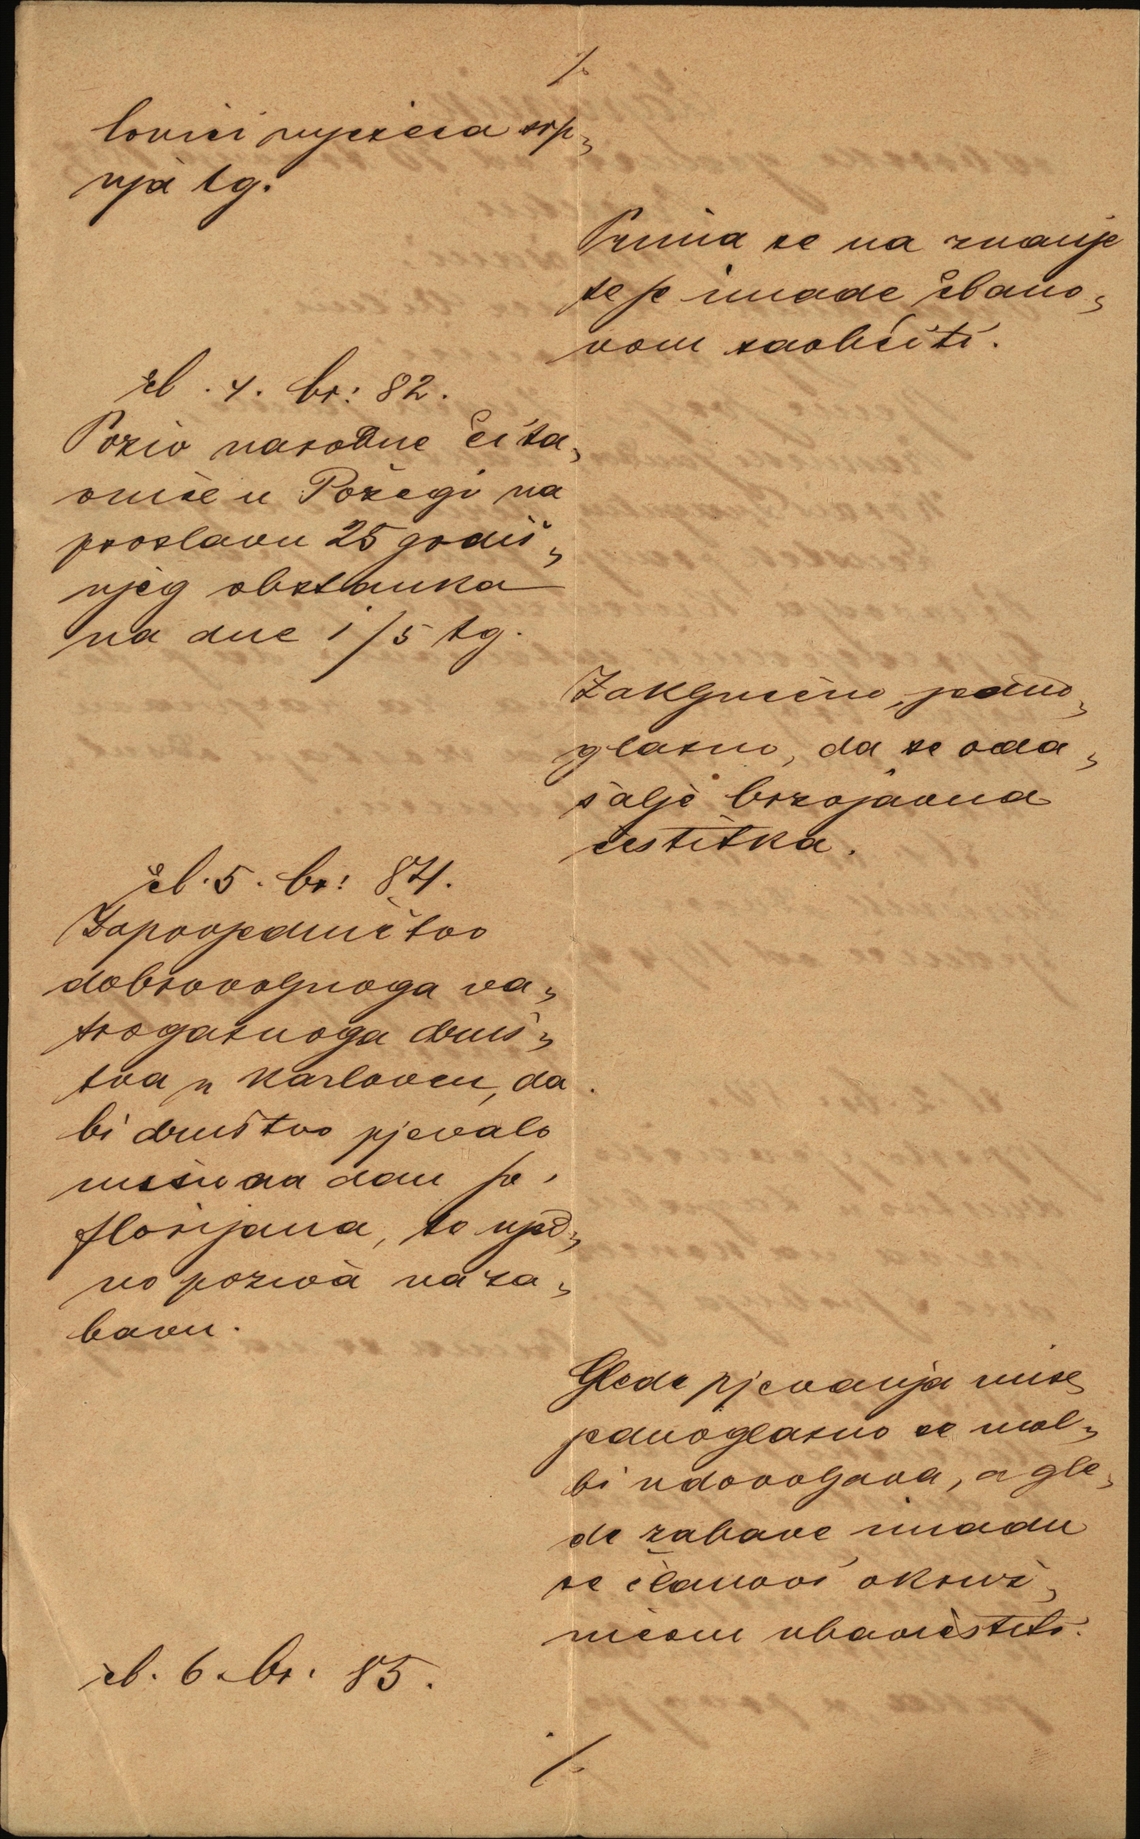 ·/.
lovici mjeseca srp„
nja tg.
Prima se na znanje
te je imade člano„
vom saobćiti.
čl. 4. br: 82.
Poziv narodne čita„
onice u Požegi na
proslavu 25 godiš„
njeg obstanka
na dne 1/5 tg.
Zaključeno, jedno„
glasno, da se oda„
šalje brzojavna
čestitka.
čl. 5. br: 84.
Zapovjedničtvo
dobrovoljnoga va„
trogasnoga druš„
tva u Karlovcu, da
bi društvo pjevalo
misu na dan sv.
Florijana, te ujed„
no poziva na za„
bavu.
Glede pjevanja mise
jednoglasno se mol„
bi udovoljava, a gle„
de zabave imadu
se članovi okruž„
nicom obaviestiti.
čl. 6. br. 85.
·/.